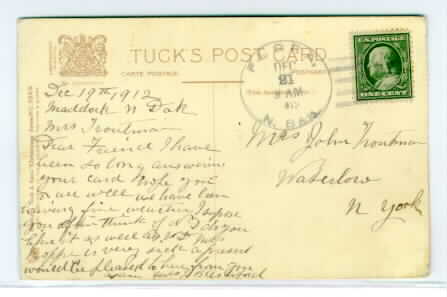 TUCK'S POST CARD
CARTE POSTALE
DEC
21
9 AM
N. DAK.
U.S. POSTAGE
ONE CENT
Dec 19th 1912
Maddock N Dak
Mrs Troutman
Dear Friend I have
been so long answering
your card hope you
are well we have been
having fine weather I
you often think of N D do you
like it as well as
is very sick at present
would be pleased to hear from you
Mrs John Troutman
Waterloo
N York